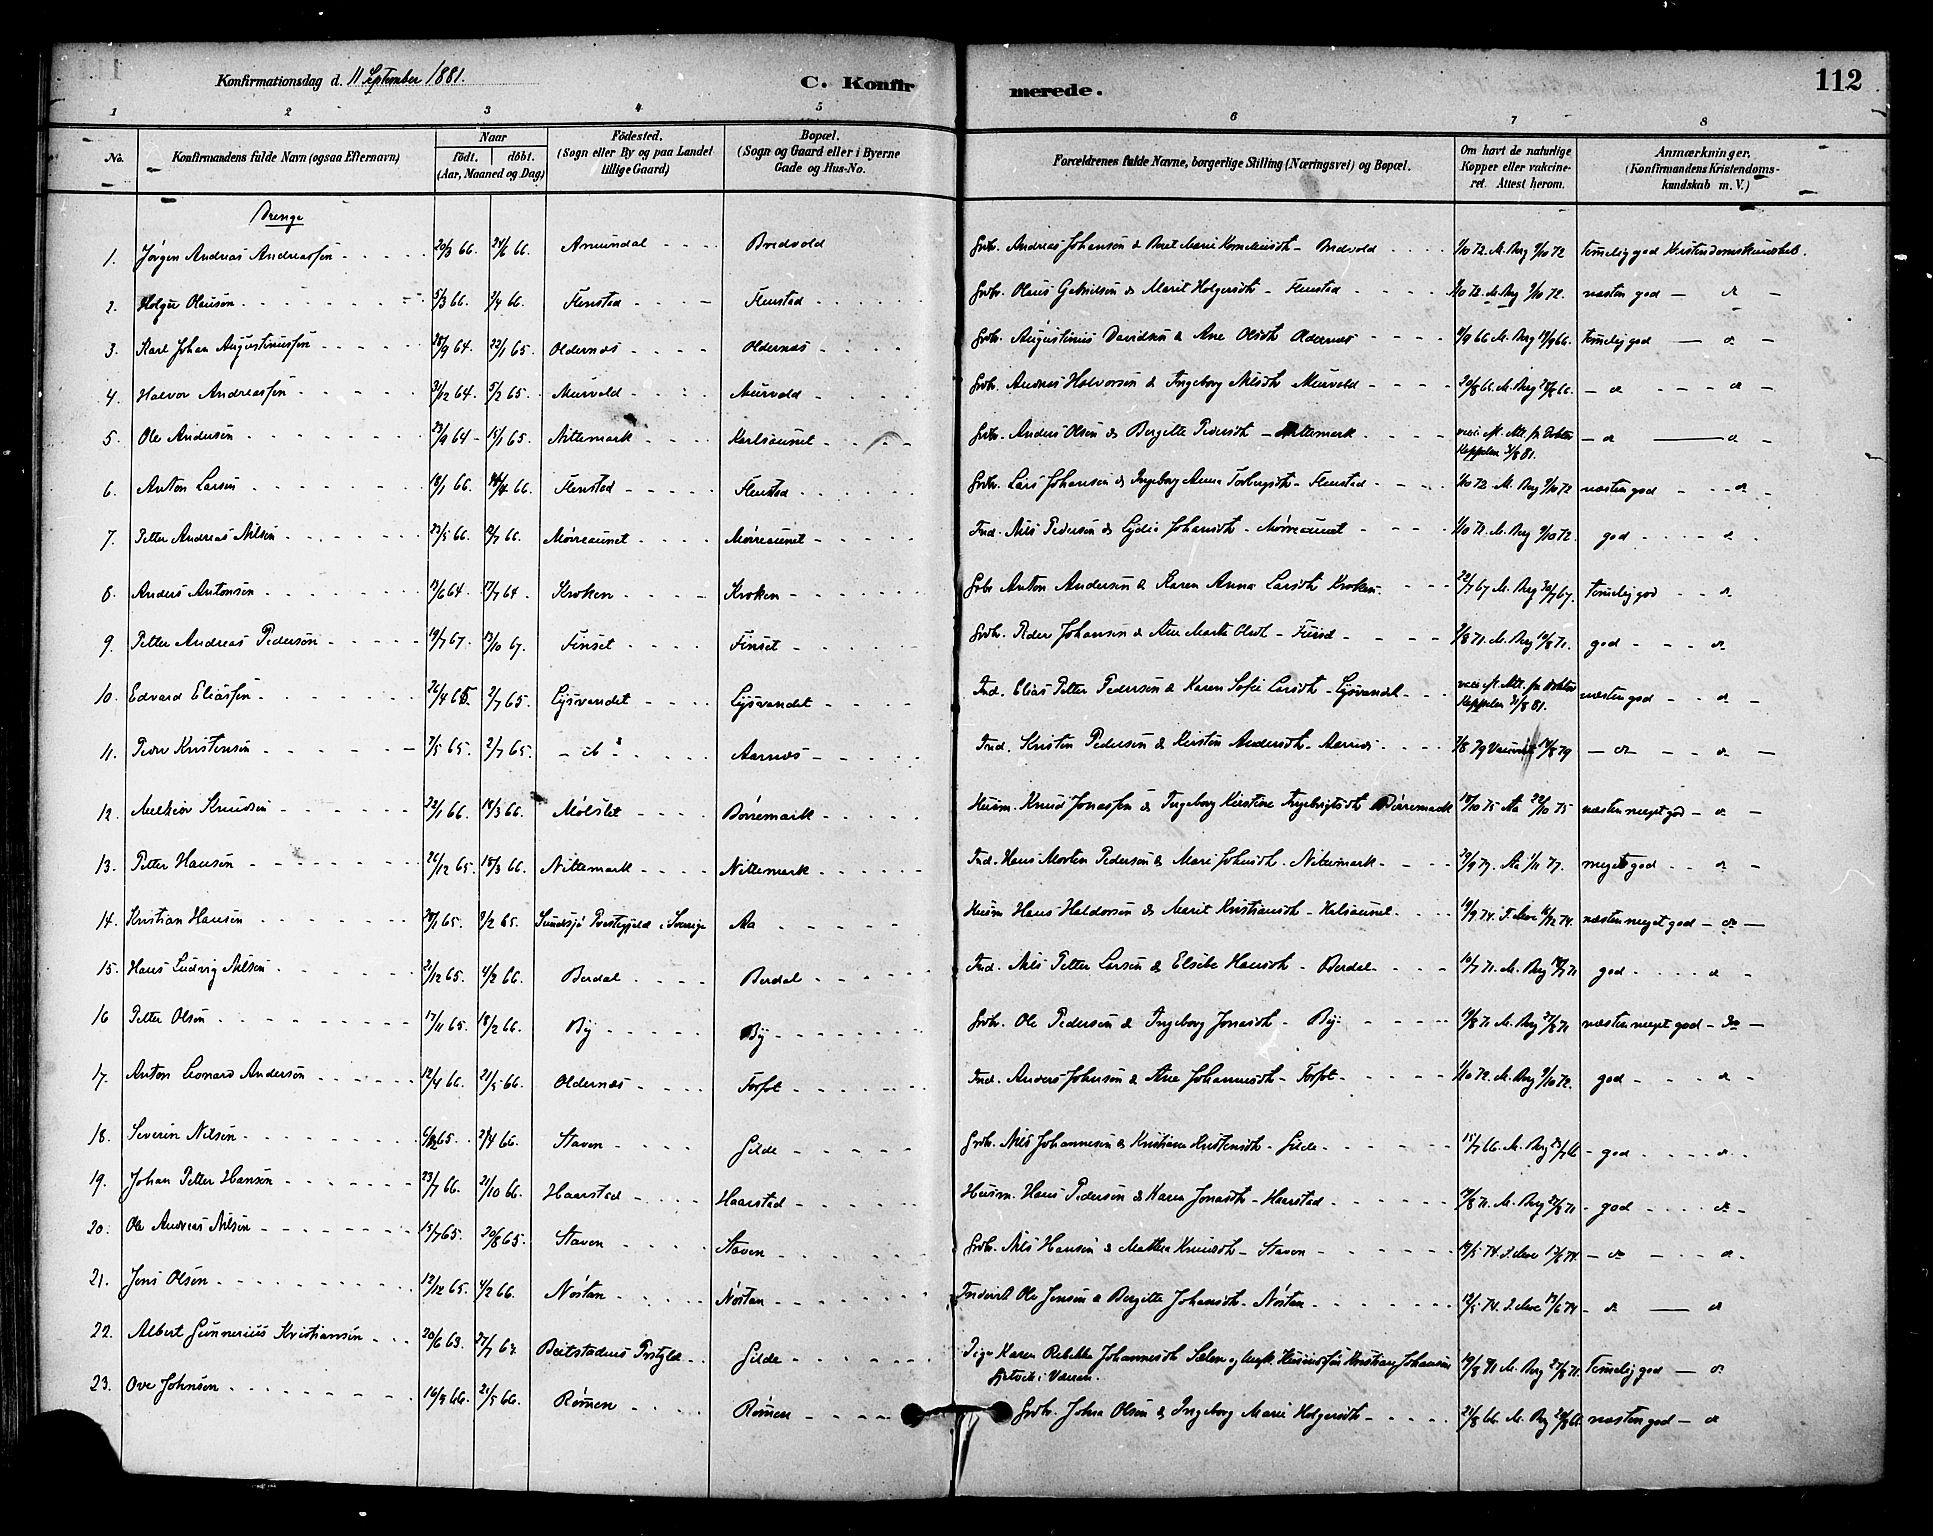 Konfirmationsdag d. 11 September 1881.
C. Konfirmerede.
112
1 2 3 4 5 6 7 8
No. Konfirmandens fulde Navn (ogsaa Efternavn) Naar födt. döbt. (Aar, Maaned og Dag) Födested. (Sogn eller By og paa Landet tillige Gaard) Bopæl. (Sogn og Gaard eller i Byerne Gade og Hus-No. Forældrenes fulde Navne, borgerlige Stilling (Næringsvei) og Bopæl. Om havt de naturlige Kopper eller vakcineret. Attest herom. Anmærkninger. (Konfirmandens Kristendomskundskab m. V.)
Drenge
1. Jørgen Andreas Andreassen 20/3 66. 24/6 66. Aunundal Bredvold Grbr. Andreas Johansen & Beret Marie Korneliusdtr - Bredvold 1/10 72. M. Berg 9/10 72 Temelig god Kristendomskundskab.
2. Holger Olausen 5/3 66. 2/4 66. Flenstad Flenstad Grbr. Olaus Gabrielsen & Marit Holgersdtr - Flenstad 1/10 72. M. Berg 9/10 72. næsten god - do -
3. Karl Johan Augustinussen 28/9 64. 22/1 65. Oldernæs Oldernæs Grbr. Augustinus Davidsen & Ane Olsdtr Oldernæs 11/9 66 M. Berg 19/9 66. temelig god - do -
4. Halvor Andreassen 31/12 64. 5/2 65. Murvold Murvold Grbr. Andreas Halvorsen & Ingeborg Nilsdtr Murvold 20/8 66. M. Berg 28/8 66. - do - do -
5. Ole Andersen 23/9 64 - 15/1 65. Nittemark Karlsaunet Grbr. Anders Olsen & Bergitte Pedersdtr - Nittemark vacc. Att. fr. Doktor Koppelen 3/8 81. - do - do -
6. Anton Larsen 18/1 66. 14/4 66. Flenstad Flenstad Grbr. Lars Johansen & Ingeborg Anna Torbergsdtr - Flenstad 1/10 72 M. Berg 9/10 72 næsten god - do -
7. Petter Andreas Nilsen 23/5 66. 8/7 66. Mørreaunet Mørreaunet Ind. Nils Pedersen & Lydia Johansdtr - Mørreaunet 1/10 72. M. Berg 9/10 72. god - do -
8. Anders Antonsen 19/6 64. 17/7 64. Kroken Kroken Grbr Anton Andersen & Karen Anna Larsdtr Kroken 22/7 67 M. Berg 30/7 67. Temelig god - do
9. Petter Andreas Pedersen 19/7 67. 13/10 67. Finset Finset Grbr. Peder Johansen & Ane Marta Olsdtr - Finset 9/8 71. M. Berg 16/8 71. god - do
10. Edvard Eliassen 26/4 65 2/7 65. Lysvandet Lysvandet Ind. Elias Petter Pedersen & Karen Sofie Larsdtr - Lysvandet vacc. Att. fra Doktor Koppelen 31/8 81. næsten god - do -
11. Peder Kristensen 7/5 65. 2/7 65. - do - Aarnæs Ind. Kristen Pedersen & Kirsten Andersdtr - Aarnæs 7/8 79 14/8 79 - do - do -
12. Melkior Knudsen 22/1 66. 18/3 66. Mølslet Børremark Husm. Knud Jonassen & Ingeborg Kirstine Ingebrigtsdtr Børremark 18/10 75 Aa 22/10 75 næsten meget god - do -
13. Petter Hansen 26/12 65. 18/3 66. Nittemark Nittemark Ind. Hans Morten Pedersen & Mari Johnsdtr - Nittemark 29/9 77. Aa 1/11 77. meget god - do -
14. Kristian Hansen 28/1 65. 9/2 65. Sundsjø Prestegjeld i Sverige Aa Husm Hans Haldorsen & Marit Kristiansdtr - næsten meget god - do -
15. Hans Ludvig Nilsen 21/12 65. 4/2 66. Berdal Berdal Ind. Nils Petter Larsen & Elsebe Hansdtr - Berdal 10/7 71. M. Berg 18/7 71 god - do -
16 Petter Olsen 17/11 65. 18/2 66. By By Grbr. Ole Pedersen & Ingeborg Jonasdtr - By 19/8 71. M. Berg 27/8 71 næsten meget god - do -
17. Anton Leonard Andersen 12/4 66. 21/5 66. Oldernæs Forfot Ind. Anders Johnsen & Ane Johannesdtr - Forfot 1/10 72. M. Berg 9/10 72. god - do -
18. Severin Nilsen 6/12 65. 2/4 66. Staven Gilde Grbr. Nils Johannesen & Kristiana Kristensdtr - Gilde 15/7 66. M. Berg 23/7 66 - god - do
19. Johan Petter Hansen 23/7 66. 21/10 66. Haarstad Haarstad Husm. Hans Pedersen & Karen Jonasdtr - Haarstad 19/8 71. M. Berg 27/8 71 - god - do -
20. Ole Andreas Nilsen 13/7 65. 20/8 65. Staven Staven Grbr. Nils Hansen & Mathea Knudsdtr - Staven - do - do
21. Jens Olsen 12/12 65. 4/2 66. Nøstan Nøstan Inderst Ole Jensen & Bergitte Johansdtr - Nøstan - do - do
22. Albert Gunnerius Kristiansen 20/6 63. 27/7 63. Beitstadens Prstgld Gilde Pige Karen Rebekka Johannesdtr Selen og Kristian Johansen i Værran. 19/8 71 M. Berg 27/8 71. Temelig god - do
23. Ove Johnsen 16/3 66. 21/5 66. Rømen Rømen Grbr. John Olsen & Ingeborg Marie Holgersdtr - 21/8 66. M. Berg 28/8 66 næsten god - do